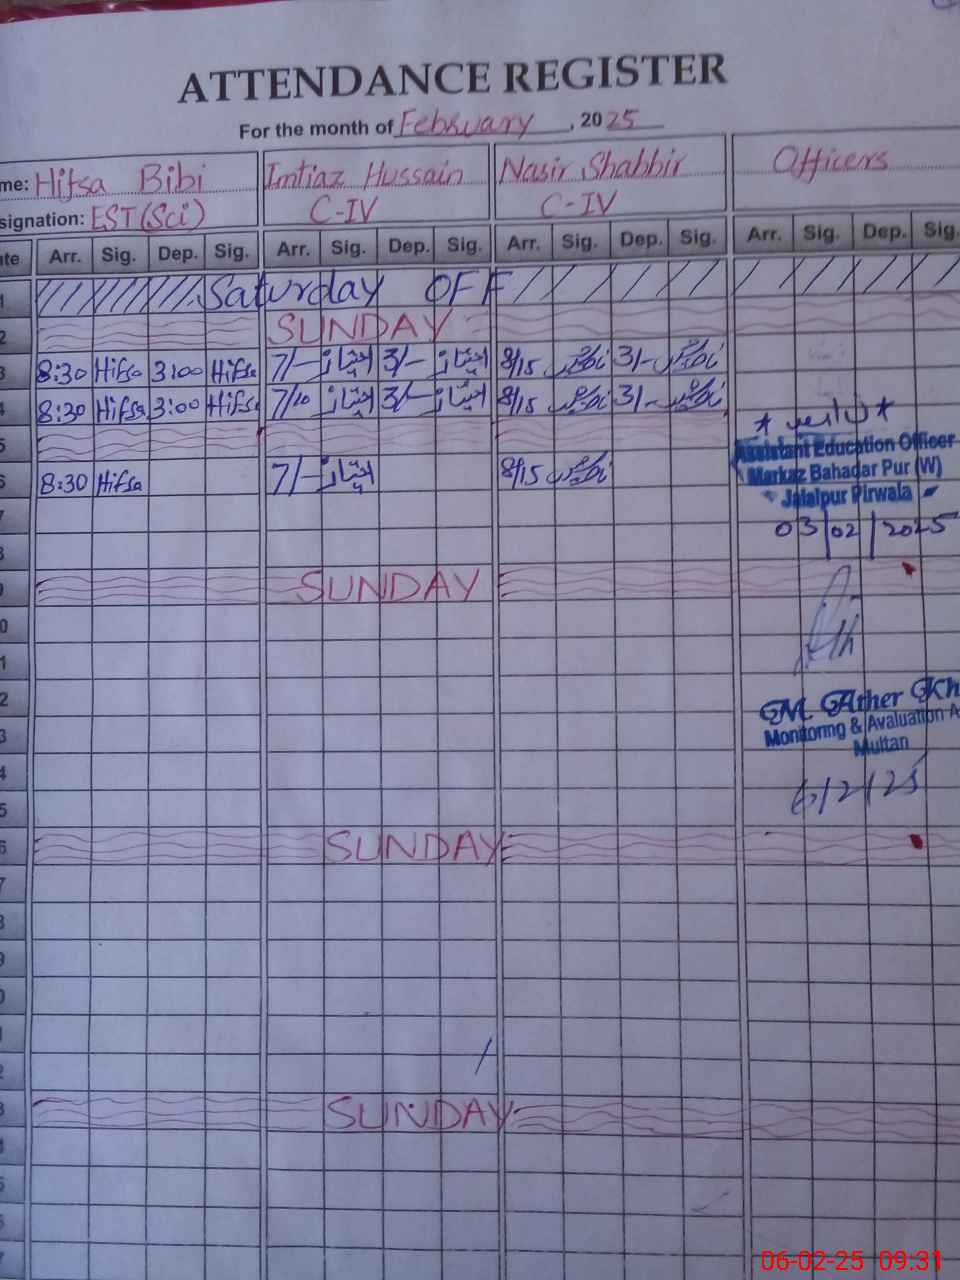 ATTENDANCE REGISTER
For the month of February, 2025
me: Hifsa Bibi Imtiaz Hussain Nasir Shabbir Officers
signation: EST(Sci) C-IV C-IV
te Arr. Sig. Dep. Sig. Arr. Sig. Dep. Sig. Arr. Sig. Dep. Sig. Arr. Sig. Dep. Sig.
1 Saturday OFF
2 SUNDAY
3 8:30 Hifsa 3:00 Hifsa 7/— امتیاز 3/— امتیاز 8/15 3/-
4 8:30 Hifsa 3:00 Hifsa 7/10 امتیاز 3/— امتیاز 8/15 3/-
5
Assistant Education Officer
Markaz Bahadar Pur (W)
Jalalpur Pirwala
6 8:30 Hifsa 7/— امتیاز 8/15
7
03/02/2025
8
9 SUNDAY
0
1
2
M. Ather Kh
3
Monitoring & Avaluation A
Multan
4
5
6/2/25
6 SUNDAY
7
8
9
0
1
2
3 SUNDAY
4
5
6
7
06-02-25 09:31